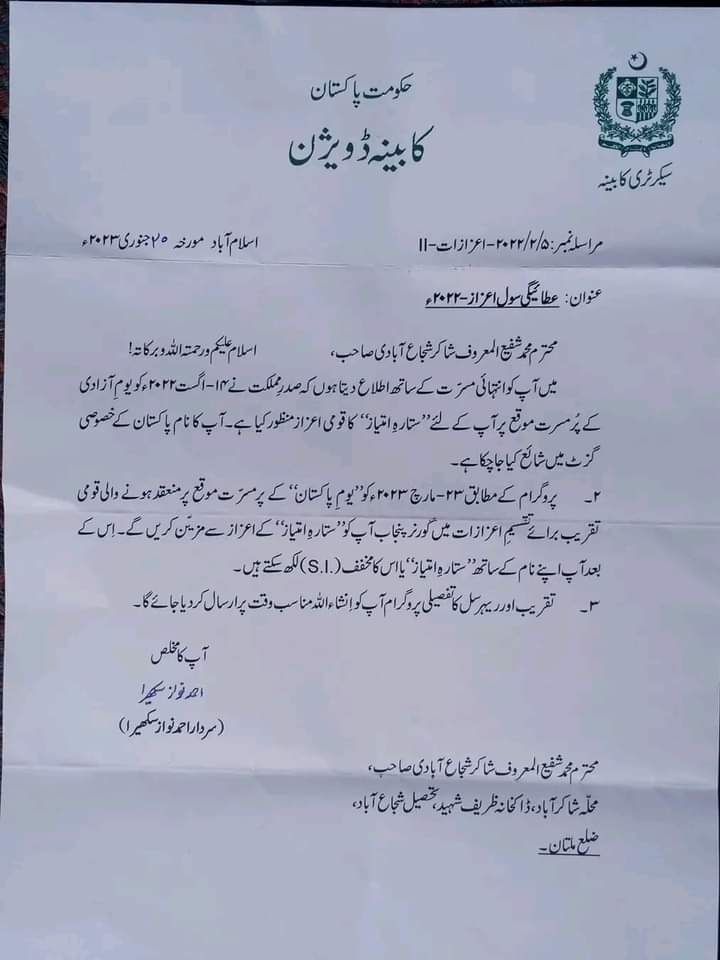 حکومت پاکستان
کابینہ ڈویژن
سیکرٹری کابینہ
مراسلہ نمبر: ۲۰۲۲/۲/۵-اعزازات-II
اسلام آباد مورخہ ۲۵ جنوری ۲۰۲۳ء
عنوان: عطائیگی سول اعزاز-۲۰۲۲ء
محترم محمد شفیع المعروف شاکر شجاع آبادی صاحب،
اسلام علیکم ورحمتہ اللہ وبرکاتہ!
میں آپ کو انتہائی مسرّت کے ساتھ اطلاع دیتا ہوں کہ صدرِ مملکت نے ۱۴-اگست ۲۰۲۲ء کو یومِ آزادی
کے پُر مسرت موقع پر آپ کے لئے ”ستارہِ امتیاز“ کا قومی اعزاز منظور کیا ہے۔ آپ کا نام پاکستان کے خصوصی
گزٹ میں شائع کیا جا چکا ہے۔
۲۔ پروگرام کے مطابق ۲۳-مارچ ۲۰۲۳ء کو ”یومِ پاکستان“ کے پر مسرّت موقع پر منعقد ہونے والی قومی
تقریب برائے تقسیمِ اعزازات میں گورنر پنجاب آپ کو ”ستارہِ امتیاز“ کے اعزاز سے مزیّن کریں گے۔ اِس کے
بعد آپ اپنے نام کے ساتھ ”ستارہِ امتیاز“ یا اس کا مخفف (S.I.) لکھ سکتے ہیں۔
۳۔ تقریب اور ریہرسل کا تفصیلی پروگرام آپ کو اِنشاءاللہ مناسب وقت پر ارسال کر دیا جائے گا۔
آپ کا مخلص
احمد نواز سکھیرا
(سردار احمد نواز سکھیرا)
محترم محمد شفیع المعروف شاکر شجاع آبادی صاحب،
محلّہ شاکر آباد، ڈاکخانہ ظریف شہید، تحصیل شجاع آباد،
ضلع ملتان۔